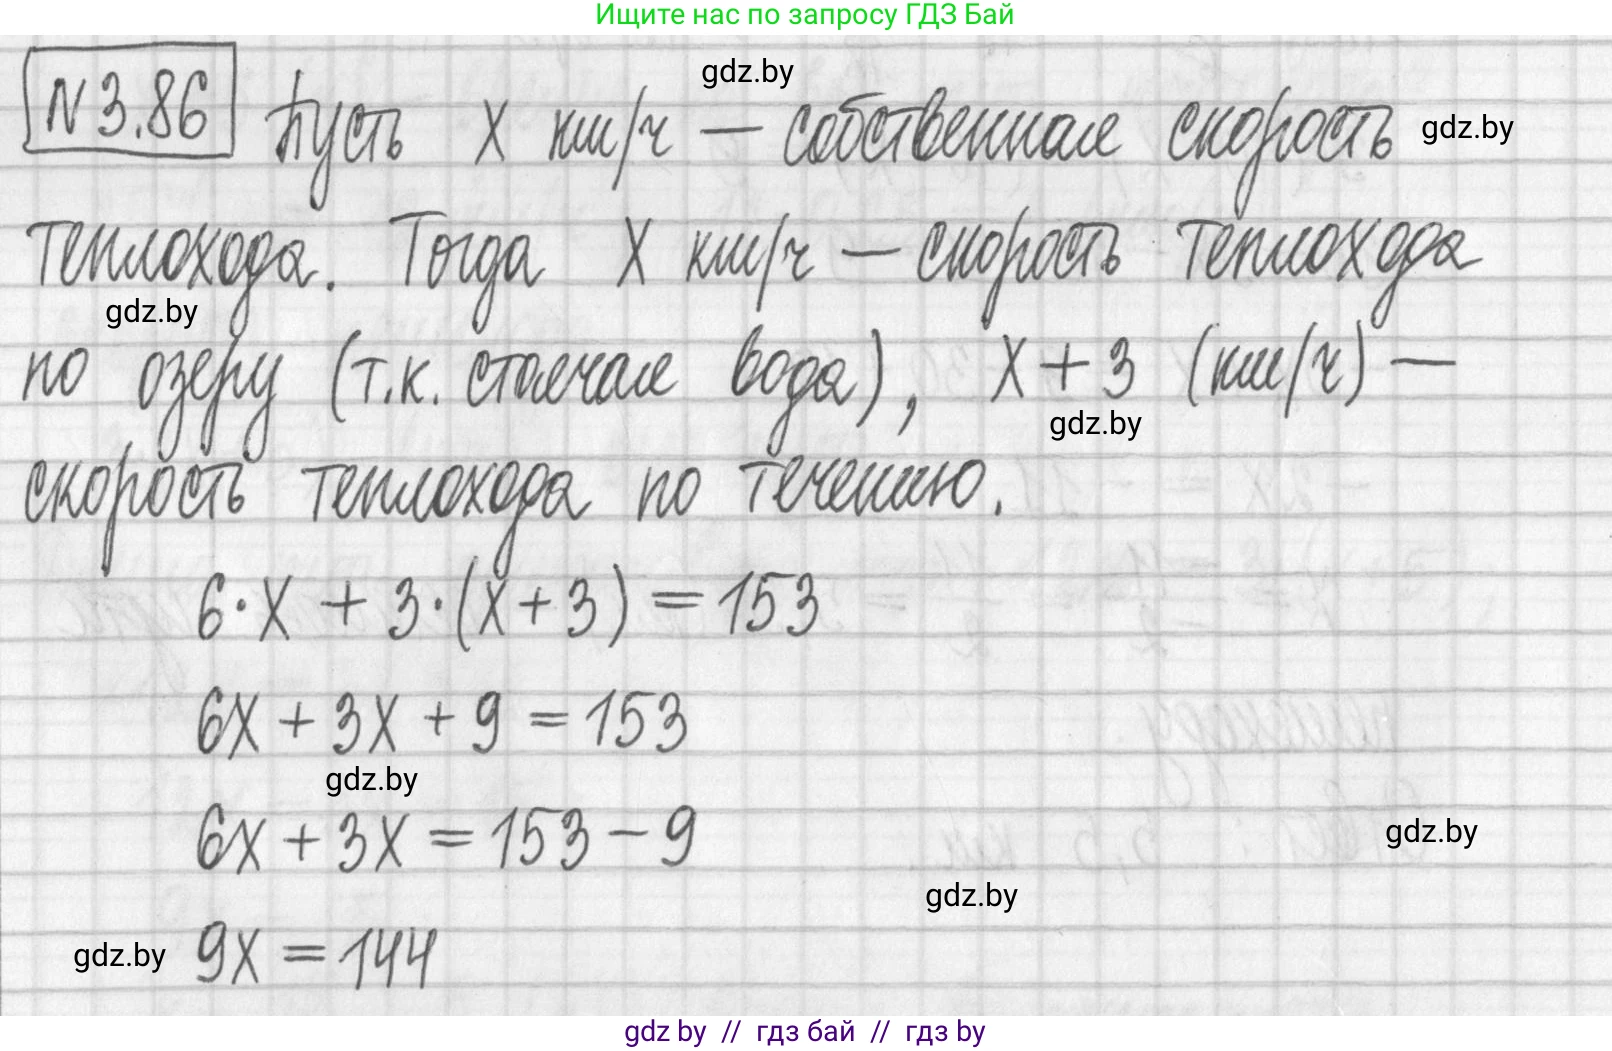 Ищите нас по запросу ГДЗ Бай
gdz.by
N 3.86 Пусть x км/ч — собственная скорость gdz.by
теплохода. Тогда x км/ч — скорость теплохода
gdz.by
по озеру (т.к. стоячая вода), x + 3 (км/ч) —
gdz.by
скорость теплохода по течению.
6·x + 3·(x+3) = 153
6x + 3x + 9 = 153
gdz.by
6x + 3x = 153 - 9
gdz.by
gdz.by
gdz.by 9x = 144
gdz by // гдз бай // гдз by